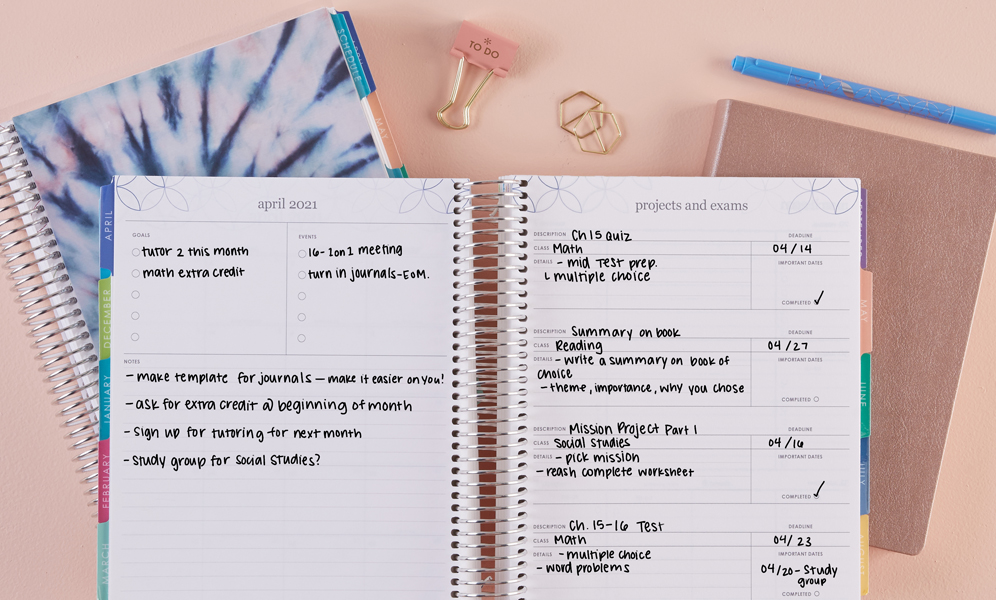 SCHEDULE
MAY
TO DO
april 2021
GOALS
tutor 2 this month
math extra credit
EVENTS
16- 1on1 meeting
turn in journals-EOM.
NOTES
- make template for journals — make it easier on you!
- ask for extra credit @ beginning of month
- sign up for tutoring for next month
- study group for Social Studies?
APRIL
DECEMBER
JANUARY
FEBRUARY
MARCH
projects and exams
DESCRIPTION Ch 15 Quiz DEADLINE
CLASS Math 04/14
DETAILS - mid Test prep. IMPORTANT DATES
multiple choice
COMPLETED ✓
DESCRIPTION Summary on book DEADLINE
CLASS Reading 04/27
DETAILS - write a summary on book of IMPORTANT DATES
choice
- theme, importance, why you chose
COMPLETED
DESCRIPTION Mission Project Part 1 DEADLINE
CLASS Social studies 04/16
DETAILS - pick mission IMPORTANT DATES
- complete worksheet
COMPLETED ✓
DESCRIPTION Ch. 15-16 Test DEADLINE
CLASS Math 04/23
DETAILS - multiple choice IMPORTANT DATES
- word problems 04/20 - Study
group
COMPLETED
MAY
JUNE
JULY